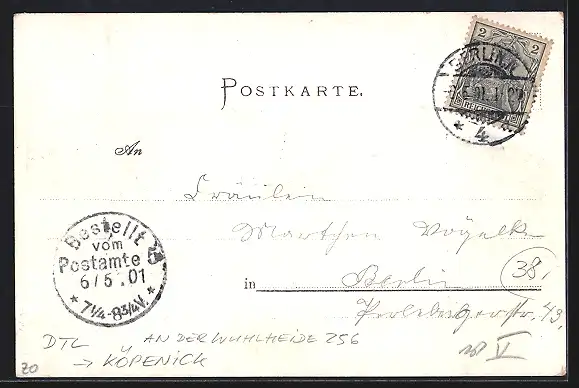 2 2
REICHSPOST
BERLIN.N.
5.01.
* 4
POSTKARTE.
An
Fräulein
Bestellt
vom
Postamte 5
6/5.01
* 7¼-8¾V. *
in Berlin
38.
DTL AN DER WUHLHEIDE 256
→ KÖPENICK
V
20